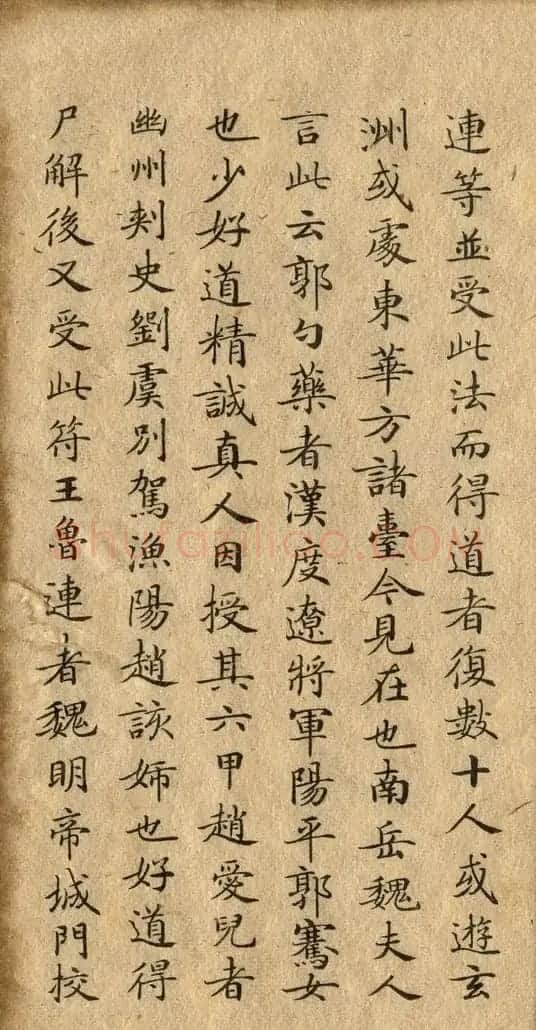 連等並受此法而得道者復數十人或遊玄
洲或處東華方諸臺今見在也南岳魏夫人
言此云郭勺藥者漢度遼將軍陽平郭騫女
也少好道精誠真人因授其六甲趙愛兒者
幽州刾史劉虞別駕漁陽趙該婦也好道得
尸解後又受此符王魯連者魏明帝城門校